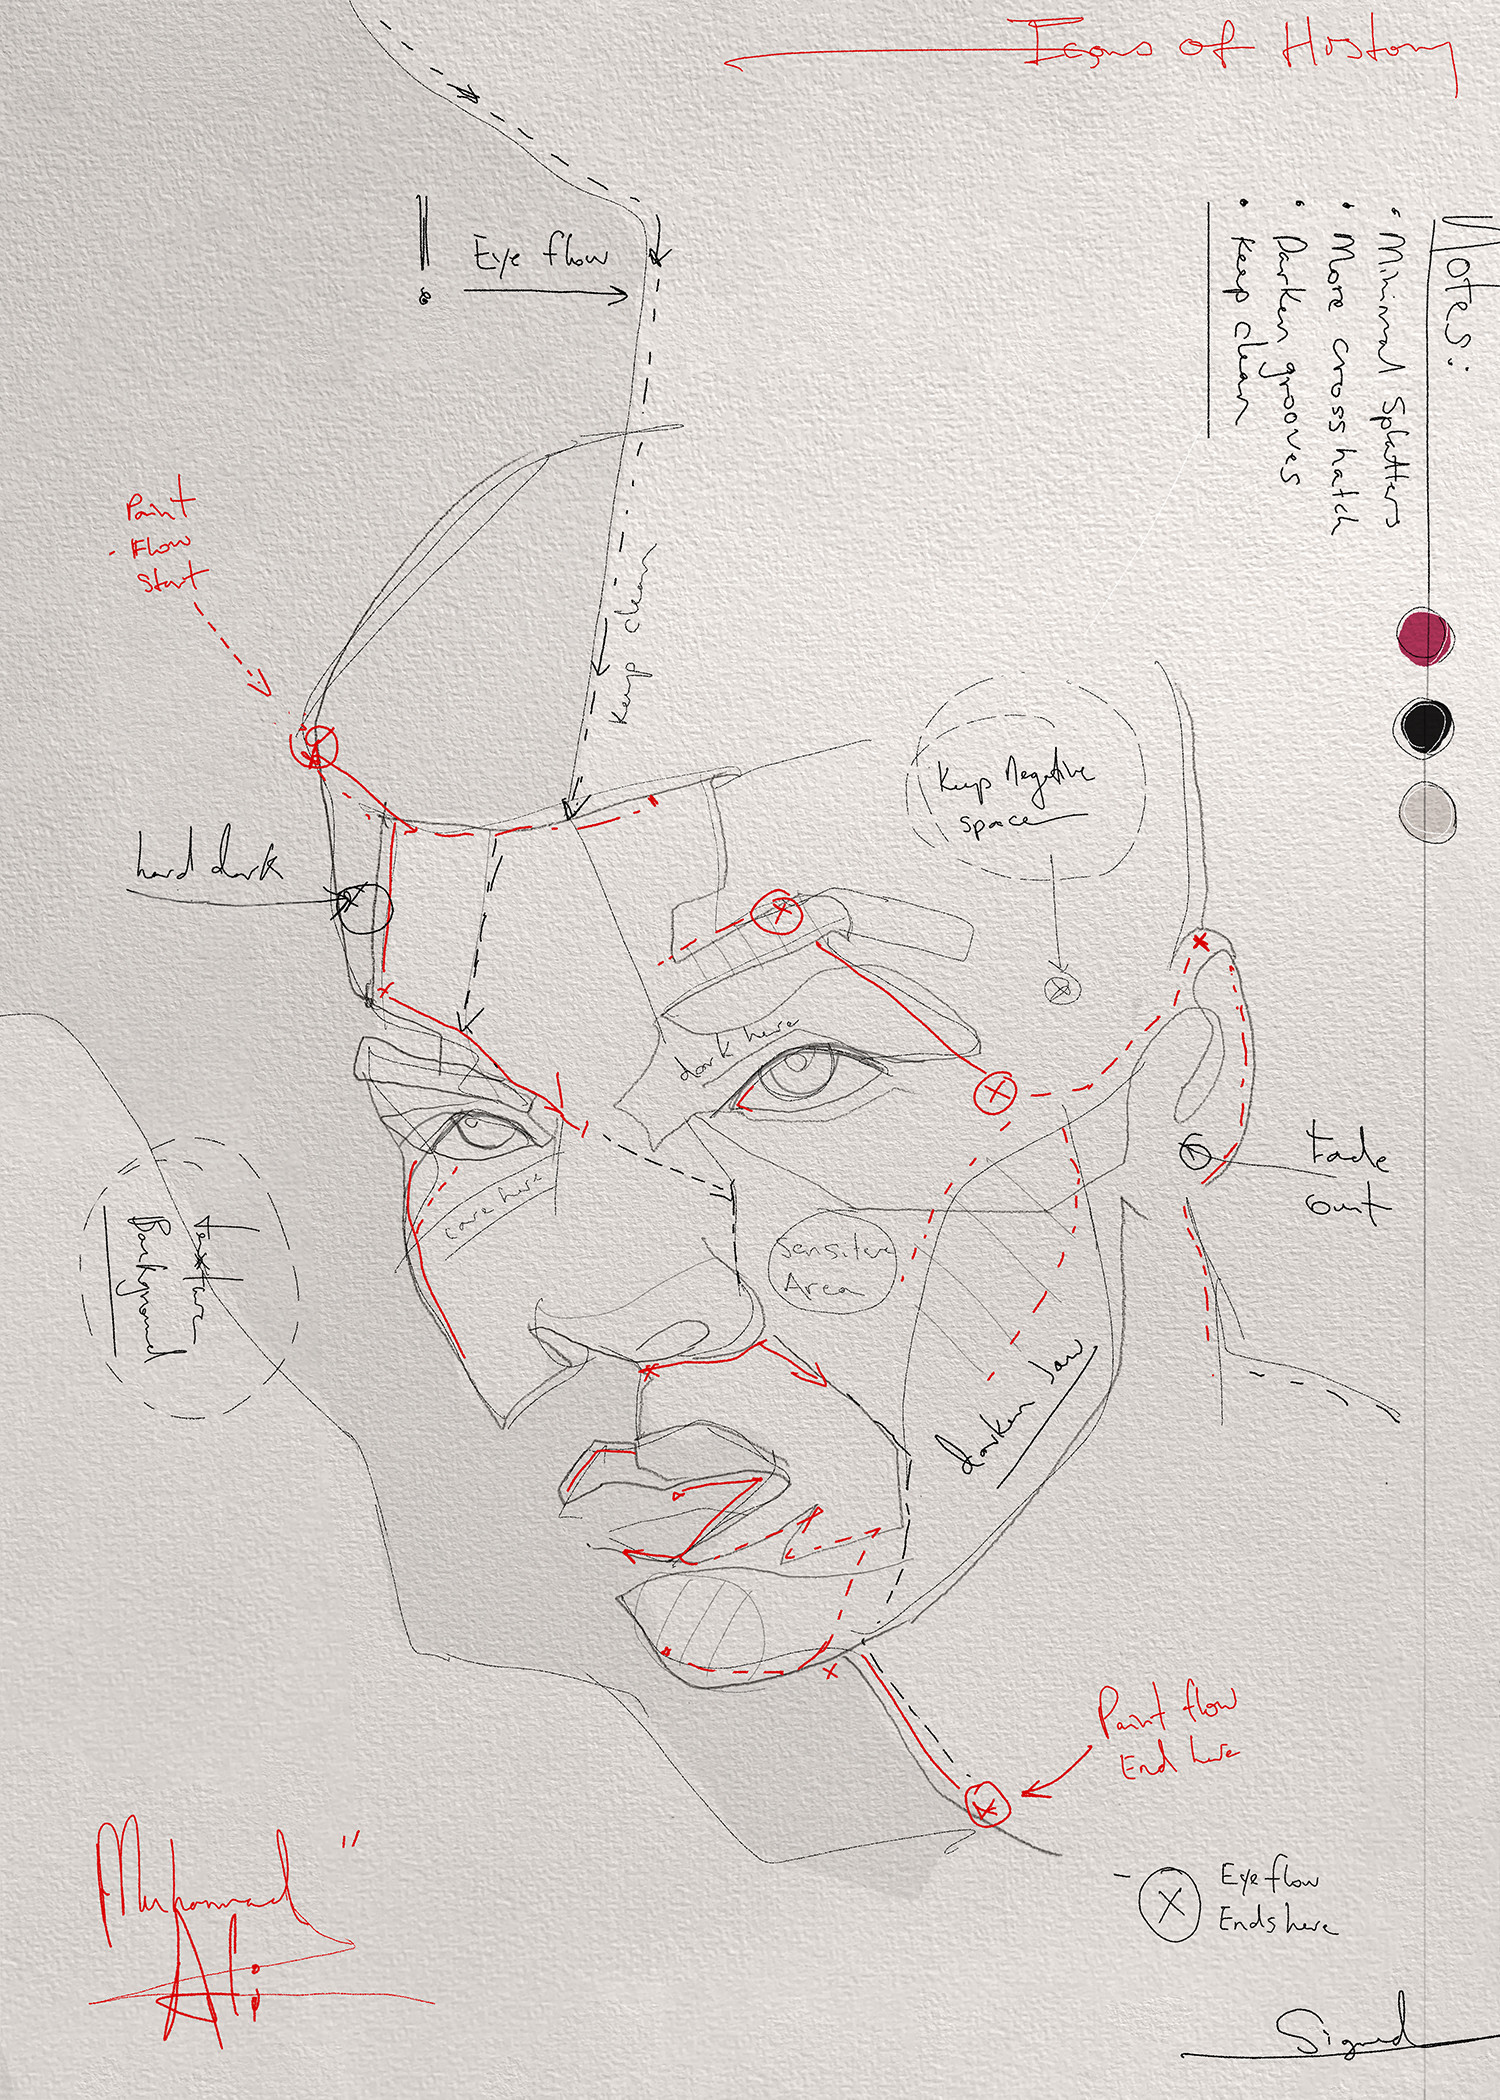 Icons of History
Notes:
• Minimal Splatters
• More cross hatch
• Darken grooves
• Keep clean
Eye flow
Paint
Flow
Start
Keep clean
Keep Negative
space
hard dark
dark here
care here
Fade
out
Texture
Background
Sensitive
Area
darken Jaw
Paint flow
End here
Muhammad
Ali
X Eye flow
Ends here
Signed